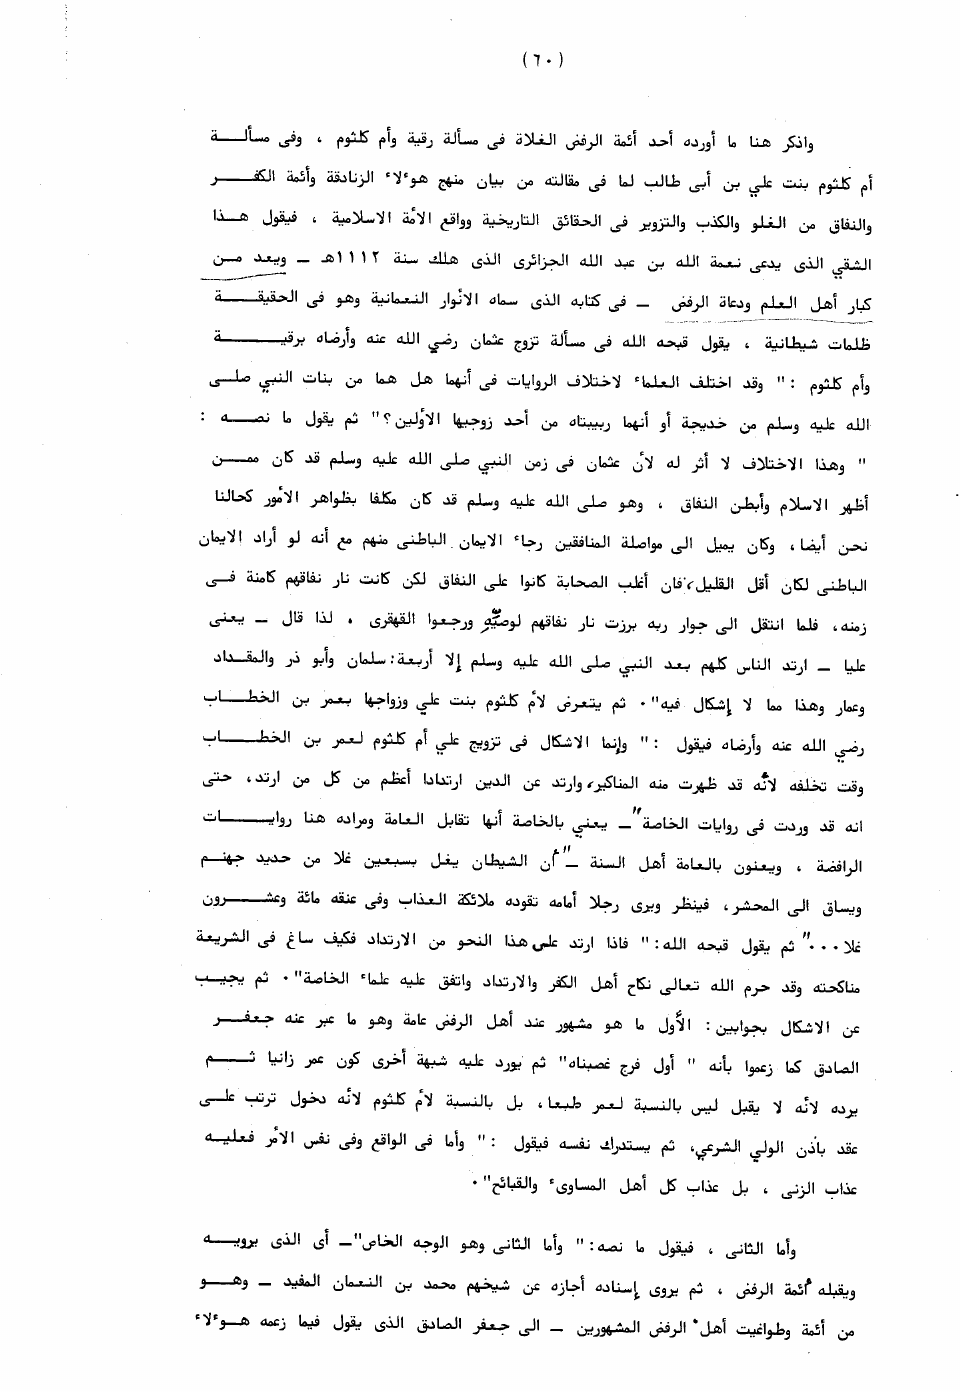 (٦٠)
واذكر هنا ما أورده أحد أئمة الرفض الغلاة فى مسألة رقية وأم كلثوم ، وفى مسألـــة
أم كلثوم بنت علي بن أبى طالب لما فى مقالته من بيان منهج هوءلاء الزنادقة وأئمة الكفــــر
والنفاق من الغلو والكذب والتزوير فى الحقائق التاريخية وواقع الأمة الاسلامية ، فيقول هــذا
الشقي الذى يدعى نعمة الله بن عبد الله الجزائرى الذى هلك سنة ١١١٢هـ ــ ويعد مــن
كبار أهل العلم ودعاة الرفض ــ فى كتابه الذى سماه الأنوار النعمانية وهو فى الحقيقــــة
ظلمات شيطانية ، يقول قبحه الله فى مسألة تزوج عثمان رضي الله عنه وأرضاه برقيـــــة
وأم كلثوم : " وقد اختلف العلماء لاختلاف الروايات فى أنهما هل هما من بنات النبي صلــى
الله عليه وسلم من خديجة أو أنهما ربيبتاه من أحد زوجيها الأولين؟" ثم يقول ما نصــه :
" وهذا الاختلاف لا أثر له لأن عثمان فى زمن النبي صلى الله عليه وسلم قد كان ممـــن
أظهر الاسلام وأبطن النفاق ، وهو صلى الله عليه وسلم قد كان مكلفا بظواهر الأمور كحالنا
نحن أيضا، وكان يميل الى مواصلة المنافقين رجاء الايمان الباطنى منهم مع أنه لو أراد الايمان
الباطنى لكان أقل القليل، فان أغلب الصحابة كانوا على النفاق لكن كانت نار نفاقهم كامنة فــى
زمنه، فلما انتقل الى جوار ربه برزت نار نفاقهم لوصيّه ورجعوا القهقرى ، لذا قال ــ يعنى
عليا ــ ارتد الناس كلهم بعد النبي صلى الله عليه وسلم إلا أربعة: سلمان وأبو ذر والمقــداد
وعمار وهذا مما لا إشكال فيه". ثم يتعرض لأم كلثوم بنت علي وزواجها بعمر بن الخطــاب
رضي الله عنه وأرضاه فيقول : " وإنما الاشكال فى تزويج علي أم كلثوم لعمر بن الخطــــاب
وقت تخلفه لأنّه قد ظهرت منه المناكير، وارتد عن الدين ارتدادا أعظم من كل من ارتد، حتى
انه قد وردت فى روايات الخاصة" ــ يعني بالخاصة أنها تقابل العامة ومراده هنا روايـــــات
الرافضة ، ويعنون بالعامة أهل السنة ــ "أن الشيطان يغل بسبعين غلا من حديد جهنــم
ويساق الى المحشر، فينظر ويرى رجلا أمامه تقوده ملائكة العذاب وفى عنقه مائة وعشـــرون
غلا..." ثم يقول قبحه الله: " فاذا ارتد على هذا النحو من الارتداد فكيف ساغ فى الشريعة
مناكحته وقد حرم الله تعالى نكاح أهل الكفر والارتداد واتفق عليه علماء الخاصة". ثم يجيــب
عن الاشكال بجوابين: الأّول ما هو مشهور عند أهل الرفض عامة وهو ما عبر عنه جعفــر
الصادق كما زعموا بأنه " أول فرج غصبناه" ثم يورد عليه شبهة أخرى كون عمر زانيا ثـــم
يرده لأنه لا يقبل ليس بالنسبة لعمر طبعا، بل بالنسبة لأم كلثوم لأنه دخول ترتب علــى
عقد بأذن الولي الشرعي، ثم يستدرك نفسه فيقول : " وأما فى الواقع وفى نفس الأمر فعليــه
عذاب الزنى ، بل عذاب كل أهل المساوىء والقبائح".
وأما الثانى ، فيقول ما نصه: " وأما الثانى وهو الوجه الخاص" ــ أى الذى يرويـــه
ويقبله أئمة الرفض ، ثم يروى إسناده أجازه عن شيخهم محمد بن النعمان المفيد ــ وهـــو
من أئمة وطواغيت أهل الرفض المشهورين ــ الى جعفر الصادق الذى يقول فيما زعمه هــوءلاء